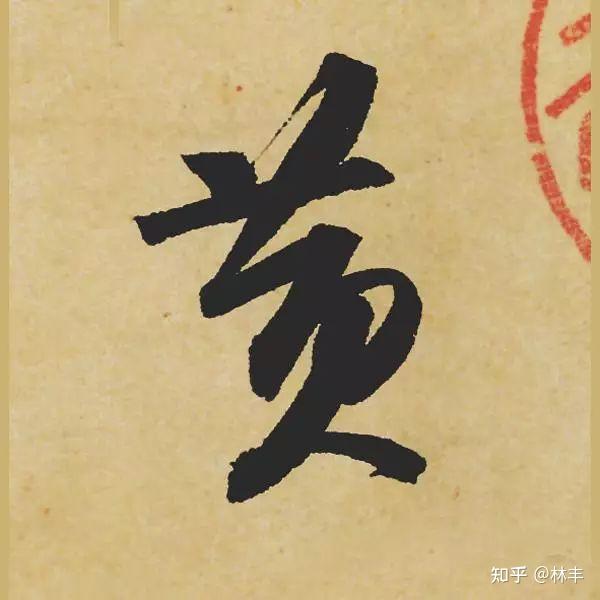 黄
知乎 @林丰